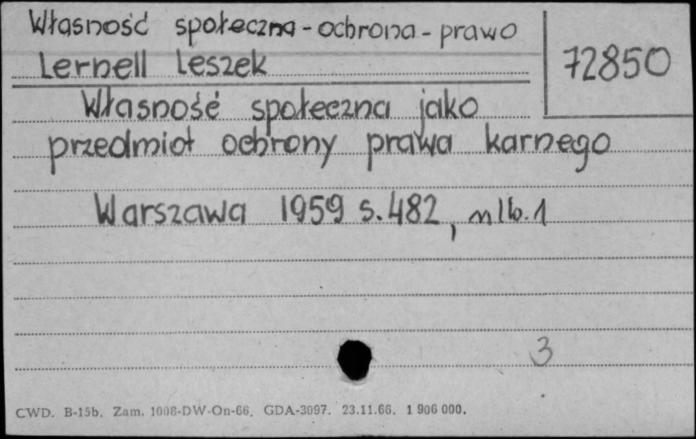 Własność społeczna - ochrona - prawo
72850
Lernell Leszek
Własność społeczna jako
przedmiot ochrony prawa karnego
Warszawa 1959 s. 482, nlb. 1
3
CWD. B-15b. Zam. 1008-DW-On-66. GDA-3097. 23.11.66. 1 906 000.